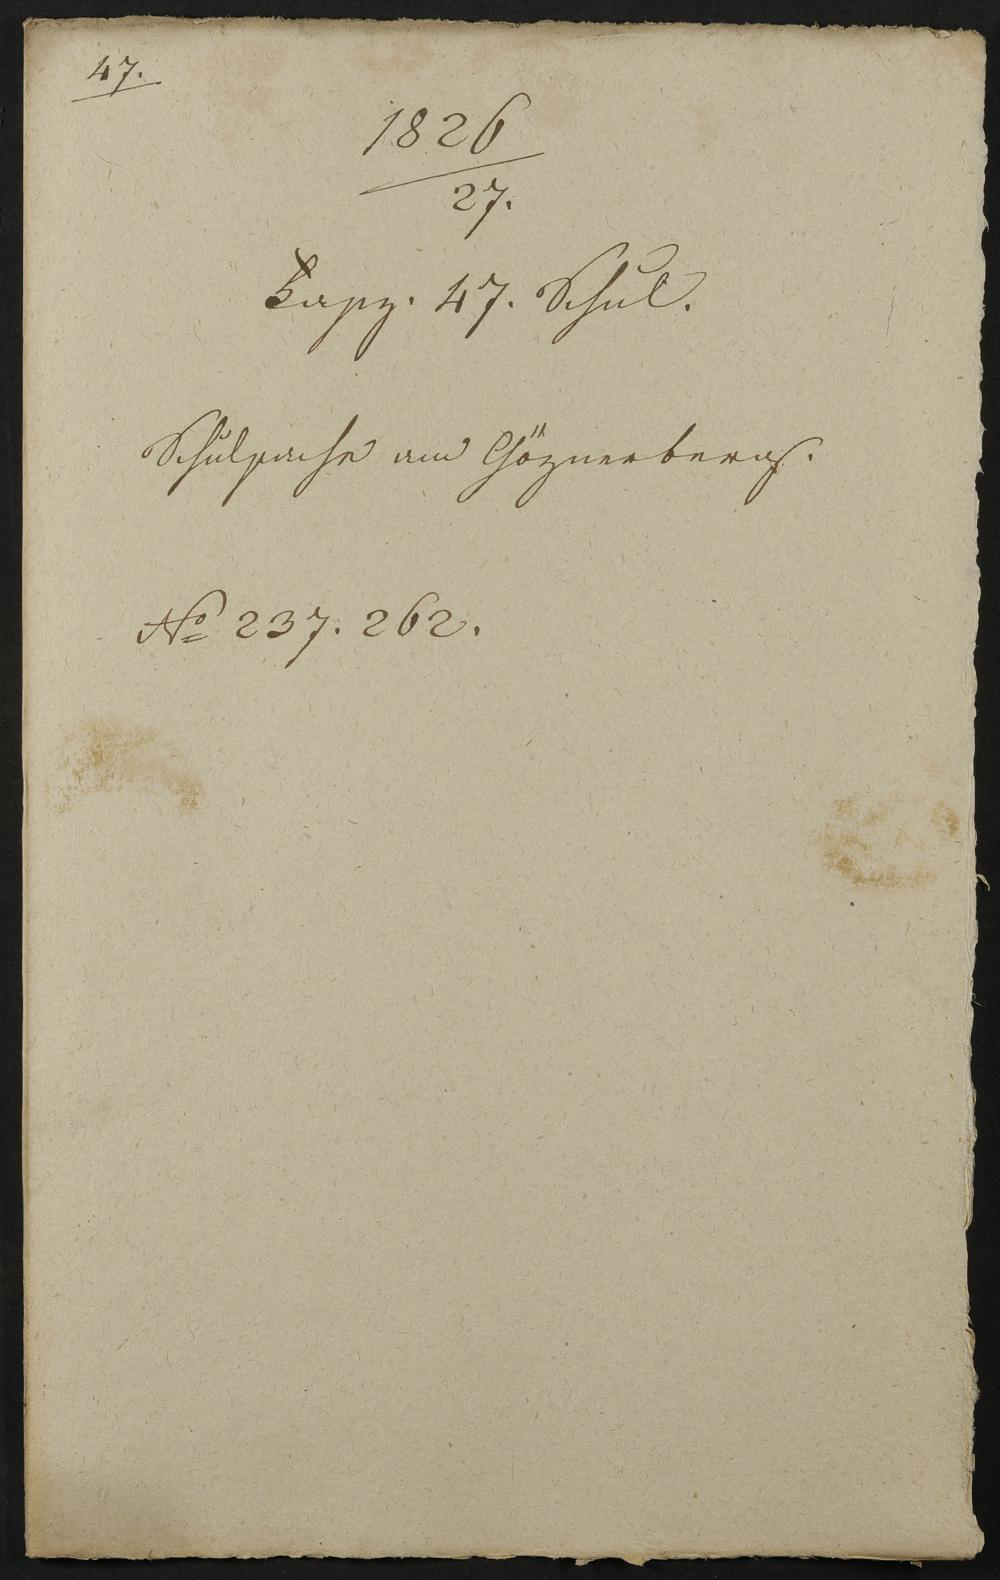 47.
1826
27.
Fasz. 47. Schul.
Schulsache am Göznerberg.
No 237. 262.